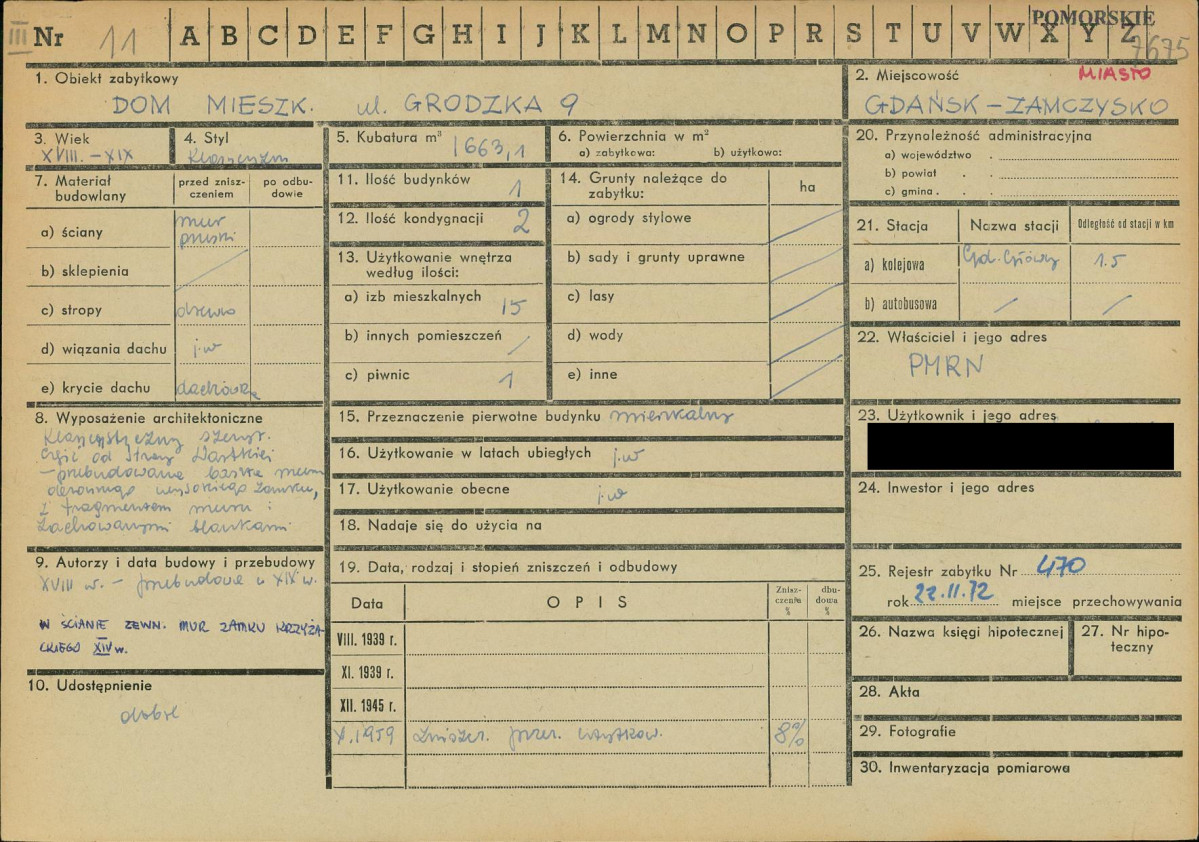 III Nr 11 A B C D E F G H I J K L M N O P R S T U V W X Y Z
POMORSKIE
7675
1. Obiekt zabytkowy
DOM MIESZK. ul. GRODZKA 9
2. Miejscowość MIASTO
GDAŃSK – ZAMCZYSKO
3. Wiek
XVIII. – XIX
4. Styl
Klasycyzm
5. Kubatura m³ 1663,1
6. Powierzchnia w m²
a) zabytkowa: b) użytkowa:
7. Materiał budowlany
przed zniszczeniem
po odbudowie
a) ściany mur pruski
b) sklepienia
c) stropy drewno
d) wiązania dachu j.w
e) krycie dachu dachówka
8. Wyposażenie architektoniczne
Klasycystyczny szczyt.
Część od strony
– przebudowana baszta muru
obronnego wysokiego zamku,
z fragmentem muru i
zachowanymi blankami
9. Autorzy i data budowy i przebudowy
XVIII w. – przebudowa w XIX w.
W ŚCIANIE ZEWN. MUR ZAMKU KRZYŻA-
CKIEGO XIV w.
10. Udostępnienie
dobre
11. Ilość budynków 1
12. Ilość kondygnacji 2
13. Użytkowanie wnętrza
według ilości:
a) izb mieszkalnych 15
b) innych pomieszczeń
c) piwnic 1
14. Grunty należące do
zabytku:
ha
a) ogrody stylowe
b) sady i grunty uprawne
c) lasy
d) wody
e) inne
15. Przeznaczenie pierwotne budynku mieszkalny
16. Użytkowanie w latach ubiegłych j.w
17. Użytkowanie obecne j.w
18. Nadaje się do użycia na
19. Data, rodzaj i stopień zniszczeń i odbudowy
Data OPIS Znisz-
czenia
% dbu-
dowa
%
VIII. 1939 r.
XI. 1939 r.
XII. 1945 r.
X.1959 zniszcz. przez użytkow. 8%
20. Przynależność administracyjna
a) województwo .
b) powiat . .
c) gmina . .
21. Stacja Nazwa stacji Odległość od stacji w km
a) kolejowa Gd. Główny 1.5
b) autobusowa
22. Właściciel i jego adres
PMRN
23. Użytkownik i jego adres
24. Inwestor i jego adres
25. Rejestr zabytku Nr 470
rok 22.11.72 miejsce przechowywania
26. Nazwa księgi hipotecznej
27. Nr hipo-
teczny
28. Akta
29. Fotografie
30. Inwentaryzacja pomiarowa